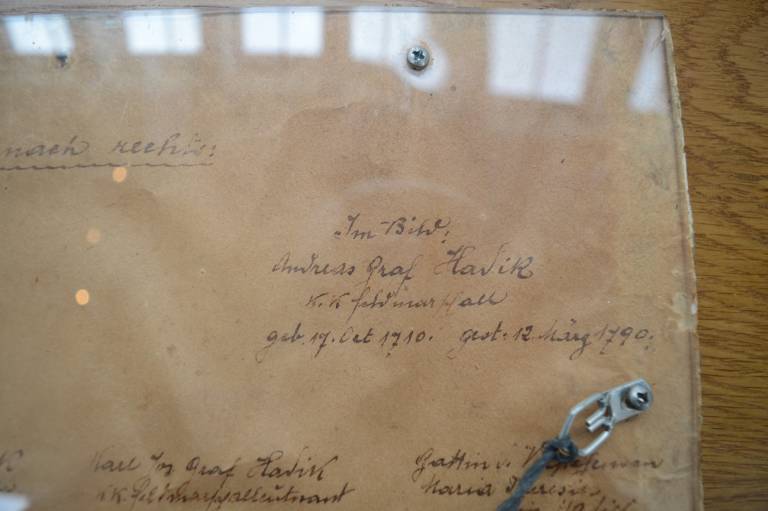 nach rechts:
Im Bild:
Andreas Graf Hadik
K. K. Feldmarschall
geb. 17. Oct. 1710. gest. 12. März 1790.
Karl Jos Graf Hadik
KK Feldmarschalleutnant
Gattin v.
Maria Theresia